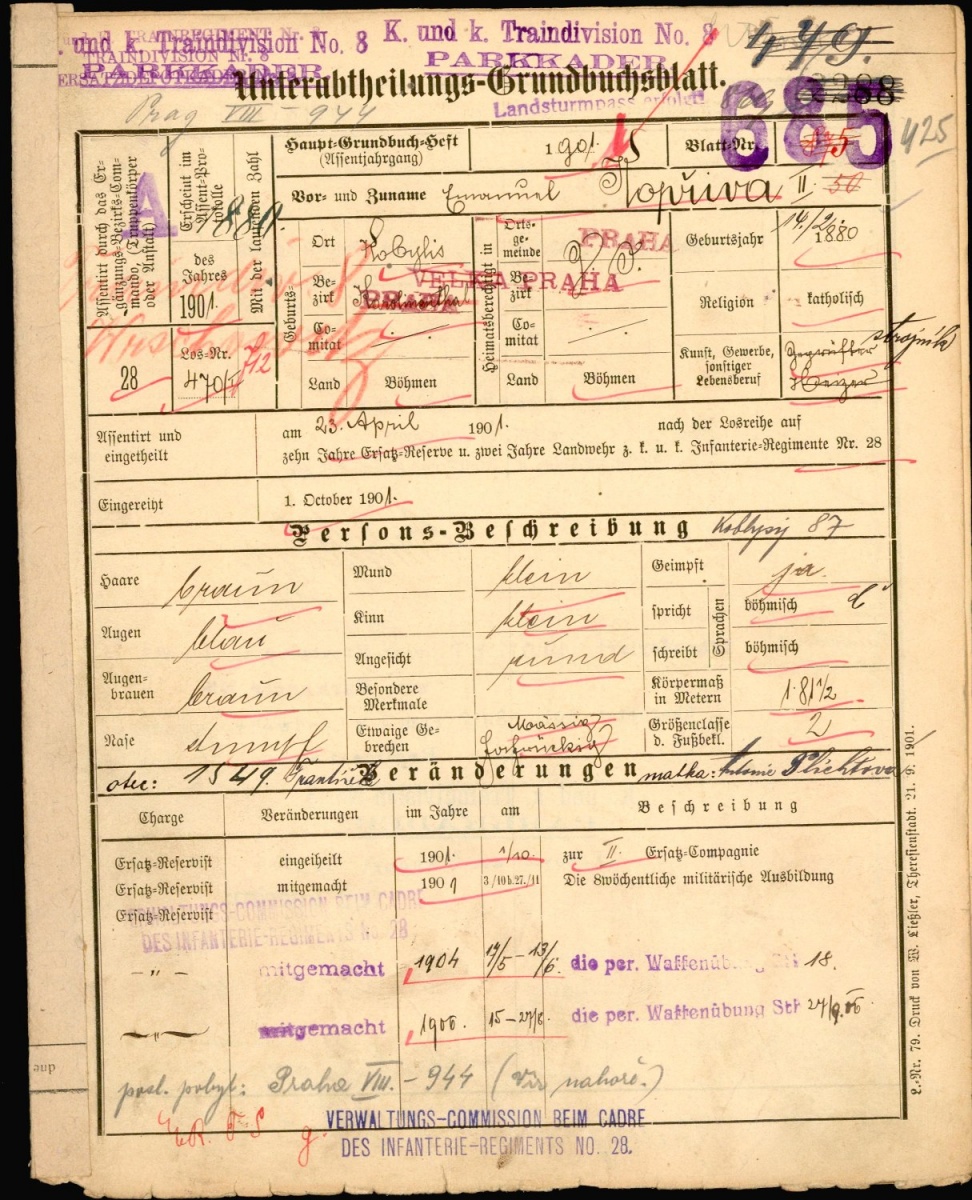 K. und k. Traindivision No. 8 K. und k. Traindivision No. 8
PARKKADER PARKKADER
449.
Unterabtheilungs-Grundbuchsblatt.
Landsturmpass erfolgt
Prag VIII - 944
685
425
Assentirt durch das Ergänzungs-Bezirks-Commando, (Truppenkörper oder Anstalt)
28
A
Erscheint im Assent-Protokolle
des Jahres
1901.
Los-Nr.
470/I
Mit der laufenden Zahl
1880.
Haupt-Grundbuch-Heft
(Assentjahrgang)
1901.
Blatt-Nr.
Vor- und Zuname Emanuel Kopřiva II. 50
Geburts-
Ort Kobylis
Bezirk
PRAHA
Comitat
Land Böhmen
Heimatsberechtigt in
Ortsgemeinde
PRAHA
VELKÁ PRAHA
Bezirk
Comitat
Land Böhmen
Geburtsjahr 14/2. 1880
Religion katholisch
Kunst, Gewerbe, sonstiger Lebensberuf
Geprüfter Heizer
strojník
Assentirt und eingetheilt
am 23. April 1901. nach der Losreihe auf
zehn Jahre Ersatz-Reserve u. zwei Jahre Landwehr z. k. u. k. Infanterie-Regimente Nr. 28
Eingereiht 1. October 1901.
Persons-Beschreibung 87
Haare braun
Augen blau
Augenbrauen braun
Nase stumpf
Mund klein
Kinn klein
Angesicht rund
Besondere Merkmale
Etwaige Gebrechen Mässig
Geimpft ja.
Sprachen
spricht böhmisch
schreibt böhmisch
Körpermaß in Metern 1·81 1/2
Größenclasse d. Fußbekl. 2
otec: 1549. František Veränderungen matka: Antonie Plichtova
Charge Veränderungen im Jahre am Beschreibung
Ersatz-Reservist eingeiheilt 1901. 1/10. zur II. Ersatz-Compagnie
Ersatz-Reservist mitgemacht 1901 3/10 b. 27./11 Die 8wöchentliche militärische Ausbildung
Ersatz-Reservist
VERWALTUNGS-COMMISSION BEIM CADRE
DES INFANTERIE-REGIMENTS NO. 28
- " - mitgemacht 1904 17/5 - 13/6. die per. Waffenübung 18.
mitgemacht 1906. 15-27/8. die per. Waffenübung Str 27/9.06
posl. pobyt: Praha VIII. - 944 (viz nahoře.)
VERWALTUNGS-COMMISSION BEIM CADRE
DES INFANTERIE-REGIMENTS NO. 28.
L.-Nr. 79. Druck von W. Ließler, Theresienstadt. 21. 9. 1901.